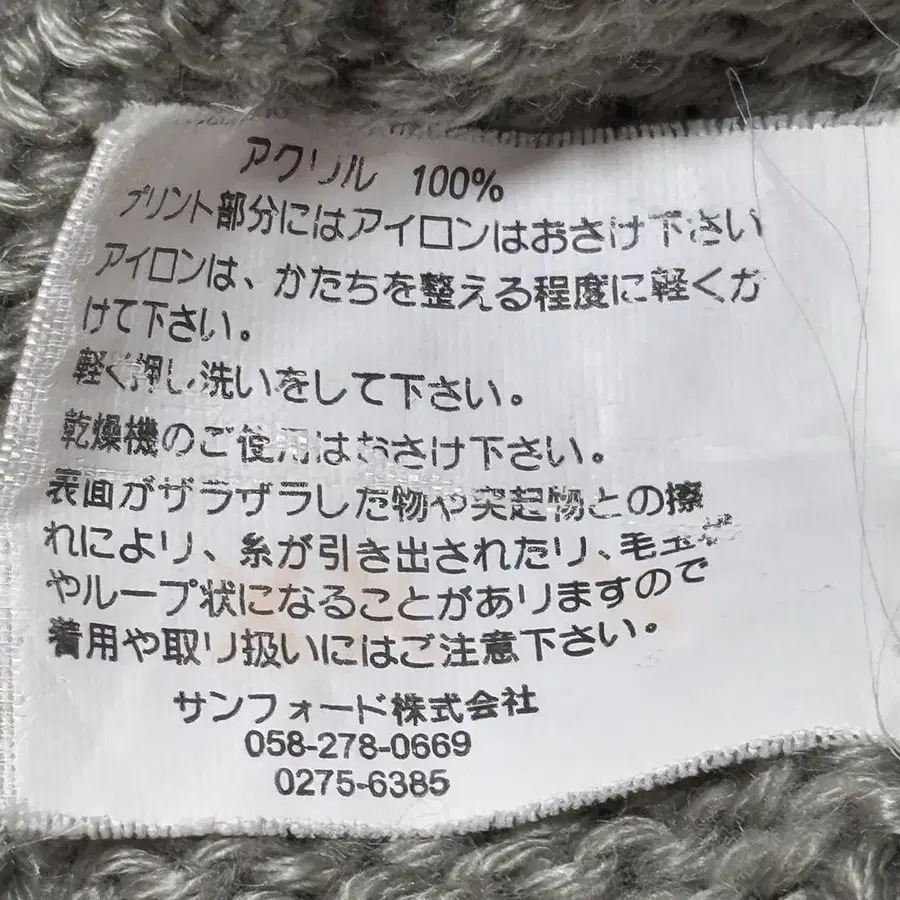 アクリル 100%
プリント部分にはアイロンはおさけ下さい
アイロンは、かたちを整える程度に軽くか
けて下さい。
軽く押し洗いをして下さい。
乾燥機のご使用はおさけ下さい。
表面がザラザラした物や突起物との擦
れにより、糸が引き出されたり、毛玉状
やループ状になることがありますので
着用や取り扱いにはご注意下さい。
サンフォード株式会社
058-278-0669
0275-6385